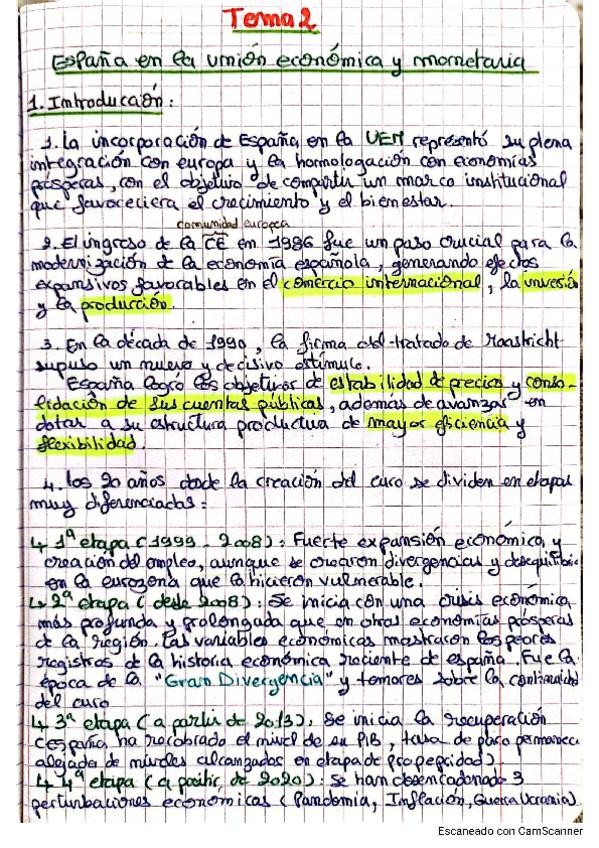 Tema 2
España en la unión económica y monetaria
1. Introducción:
1. La incorporación de España en la UEM representó su plena
integración con europa y la homologación con economías
prósperas, con el objetivo de compartir un marco institucional
que favoreciera el crecimiento y el bienestar.
comunidad europea
2. El ingreso de la CE en 1986 fue un paso crucial para la
modernización de la economía española, generando efectos
expansivos favorables en el comercio internacional, la inversió
y la producción.
3. En la década de 1990, la firma del tratado de Maastricht
supuso un nuevo y decisivo estímulo.
España logró los objetivos de estabilidad de precios y conso-
lidación de sus cuentas públicas, además de avanzar en
dotar a su estructura productiva de mayor eficiencia y
flexibilidad.
4. Los 20 años desde la creación del euro se dividen en etapas
muy diferenciadas:
↳ 1ª etapa (1999 - 2008): Fuerte expansión económica y
creación del empleo, aunque se crearon divergencias y desequilibrio
en la eurozona que la hicieron vulnerable.
↳ 2ª etapa (desde 2008): Se inicia con una crisis económica
más profunda y prolongada que en otras economías prósperas
de la región. Las variables económicas mostraron los peores
registros de la historia económica reciente de españa. Fue la
época de la "Gran Divergencia" y temores sobre la continuidad
del euro
↳ 3ª etapa (a partir de 2013): Se inicia la recuperación
(españa ha recobrado el nivel de su PIB, tasa de paro permanece
alejada de niveles alcanzados en etapa de prosperidad)
↳ 4ª etapa (a partir de 2020): Se han desencadenado 3
perturbaciones económicas (Pandemia, Inflación, Guerra Ucrania)
Escaneado con CamScanner